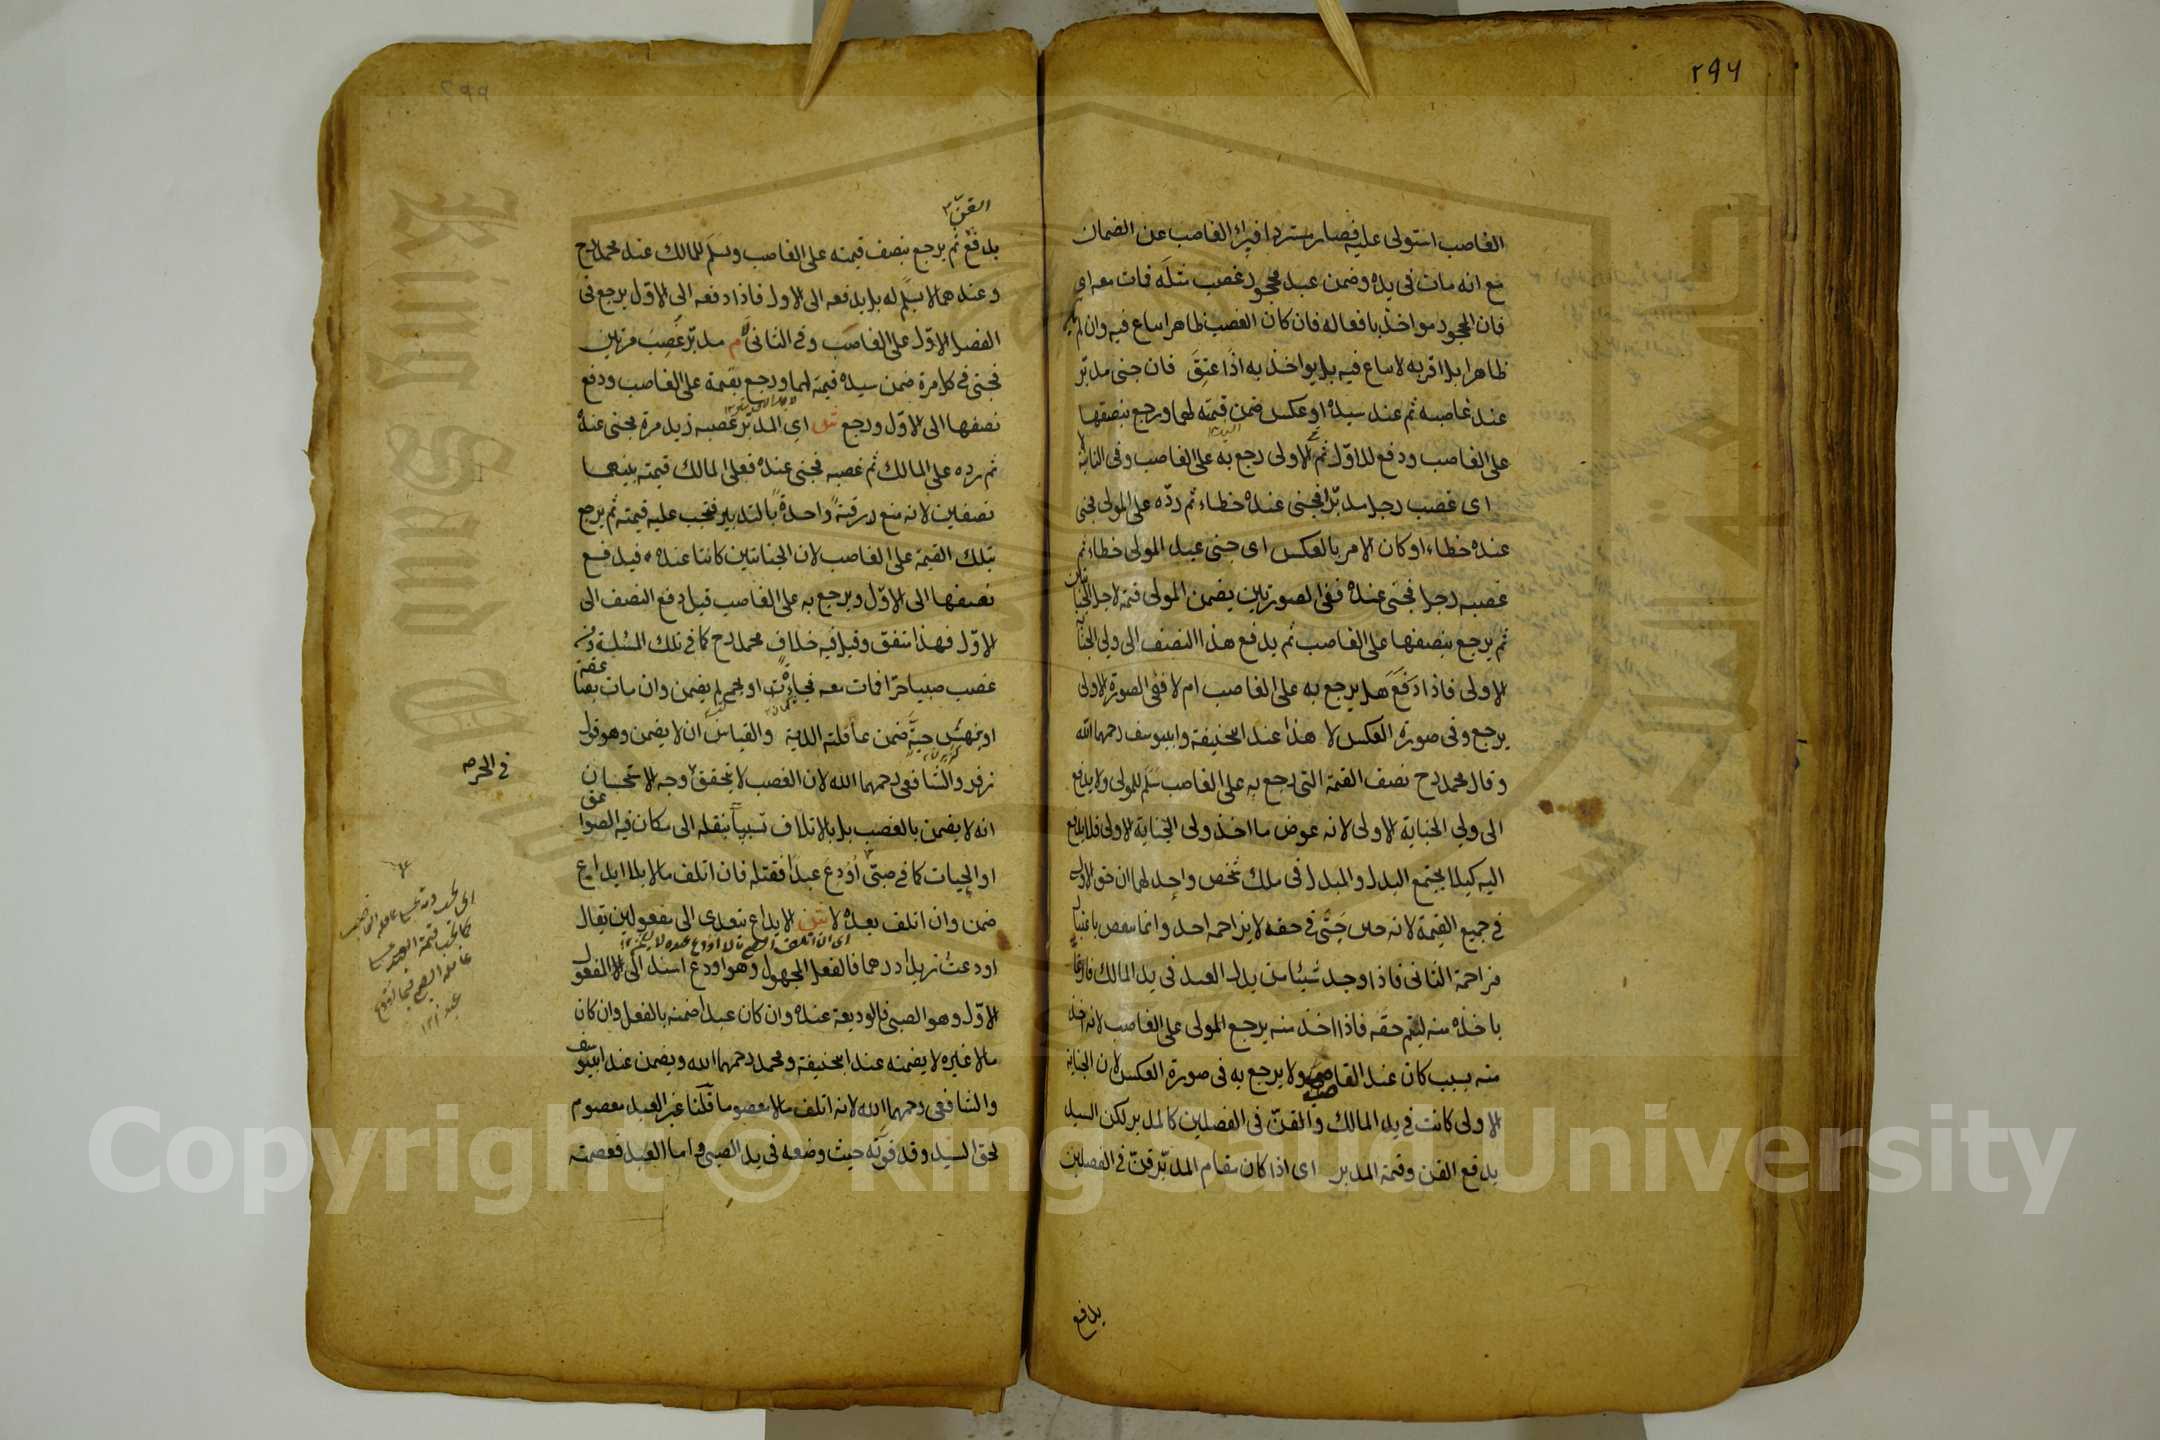 ٢٩٦
الغاصب استولى عليه فصار مستردا فيبرأ الغاصب عن الضمان
مع انه مات فى يده وضمن عبد محجور غصب مثله فمات معه اى
فان المحجور مواخذ بافعاله فان كان الغصب ظاهرا يباع فيه وان لم يكن
ظاهرا بل اقر به لا يباع فيه بل يواخذ به اذا عتق فان جنى مدبر
عند غاصبه ثم عند سيده او عكس ضمن قيمته لهما ورجع بنصفها
على الغاصب ودفع للاول ثم فى الاولى رجع به على الغاصب وفى الثانية لا
اى غصب رجل مدبرا فجنى عنده خطاء ثم رده على المولى فجنى
عنده خطاء او كان الامر بالعكس اى جنى عبد المولى خطاء ثم
غصبه رجل فجنى عنده ففى الصورتين يضمن المولى قيمته لاجل الجنايتين
ثم يرجع بنصفها على الغاصب ثم يدفع هذا النصف الى ولى الجناية
الاولى فاذا دفع هل يرجع به على الغاصب ام لا ففى الصورة الاولى
يرجع وفى صورة العكس لا هذا عند ابيحنيفة وابيوسف رحمهما الله
وقال محمد رح نصف القيمة التى رجع به على الغاصب سلم للمولى ولا يدفع
الى ولى الجناية الاولى لانه عوض ما اخذ ولى الجناية الاولى فلا يدفع
اليه كيلا يجتمع البدل والمبدل فى ملك شخص واحد لهما ان حق الاول
فى جميع القيمة لانه حين جنى فى حقه لا يزاحمه احد وانما ينقص باعتبار
مزاحمة الثانى فاذا وجد شيئا من بدل العبد فى يد المالك فارغا
ياخذه منه ليتم حقه فاذا اخذ منه يرجع المولى على الغاصب لانه اخذ
منه بسبب كان عند الغاصب ولا يرجع به فى صورة العكس لان الجناية
الاولى كانت فى يد المالك والقن فى الفصلين كالمدبر لكن السيد
يدفع القن وقيمة المدبر اى اذا كان مقام المدبر قن فى الفصلين
يدفع
٢٩٩
القن
يدفع ثم يرجع بنصف قيمته على الغاصب وسلم للمالك عند محمد رح
وعندهما لا يسلم له بل يدفعه الى الاول فاذا دفعه الى الاول يرجع فى
الفصل الاول على الغاصب وفى الثانى لا م مدبر غصب مرتين
فجنى فى كل مرة ضمن سيده قيمته لهما ورجع بقيمة على الغاصب ودفع
نصفها الى الاول ورجع ش اى المدبر غصبه زيد مرة فجنى عنده
ثم رده على المالك ثم غصبه فجنى عنده فعلى المالك قيمته بينهما
نصفين لانه منع رقبة واحدة بالتدبير فتجب عليه قيمته ثم يرجع
بتلك القيمة على الغاصب لان الجنايتين كانتا عنده فيدفع
نصفها الى الاول ويرجع به على الغاصب قبل دفع النصف الى
الاول فهذا متفق وقيل فيه خلاف محمد رح كما فى تلك المسئلة ومن
غصب صبيا حرا فمات معه فجاءة او بحمى لم يضمن وان مات بصاعقة
او نهش حية ضمن عاقلته الدية والقياس ان لا يضمن وهو قول
زفر والشافعى رحمهما الله لان الغصب لا يتحقق وجه الاستحسان
فى الحر صه
انه لا يضمن بالغصب بل بالاتلاف تسبيبا بنقله الى مكان فيه الصواعق
او الحيات كما فى صبى اودع عبدا فقتله فان اتلف مالا بلا ايداع
ضمن وان اتلف بعده لا ش الايداع يتعدى الى مفعولين يقال
اودعت زيدا درهما فالفعل المجهول وهو اودع اسند الى المفعول
الاول وهو الصبى فالوديعة عنده وان كان عبدا ضمنه بالفعل وان كان
مالا غيره لا يضمنه عند ابيحنيفة ومحمد رحمهما الله ويضمن عند ابيوسف
والشافعى رحمهما الله لانه اتلف مالا معصوما قلنا غير العبد معصوم
لحق السيد وقد فوته حيث وضعه فى يد الصبى واما العبد فعصمته
Copyright © King Saud University